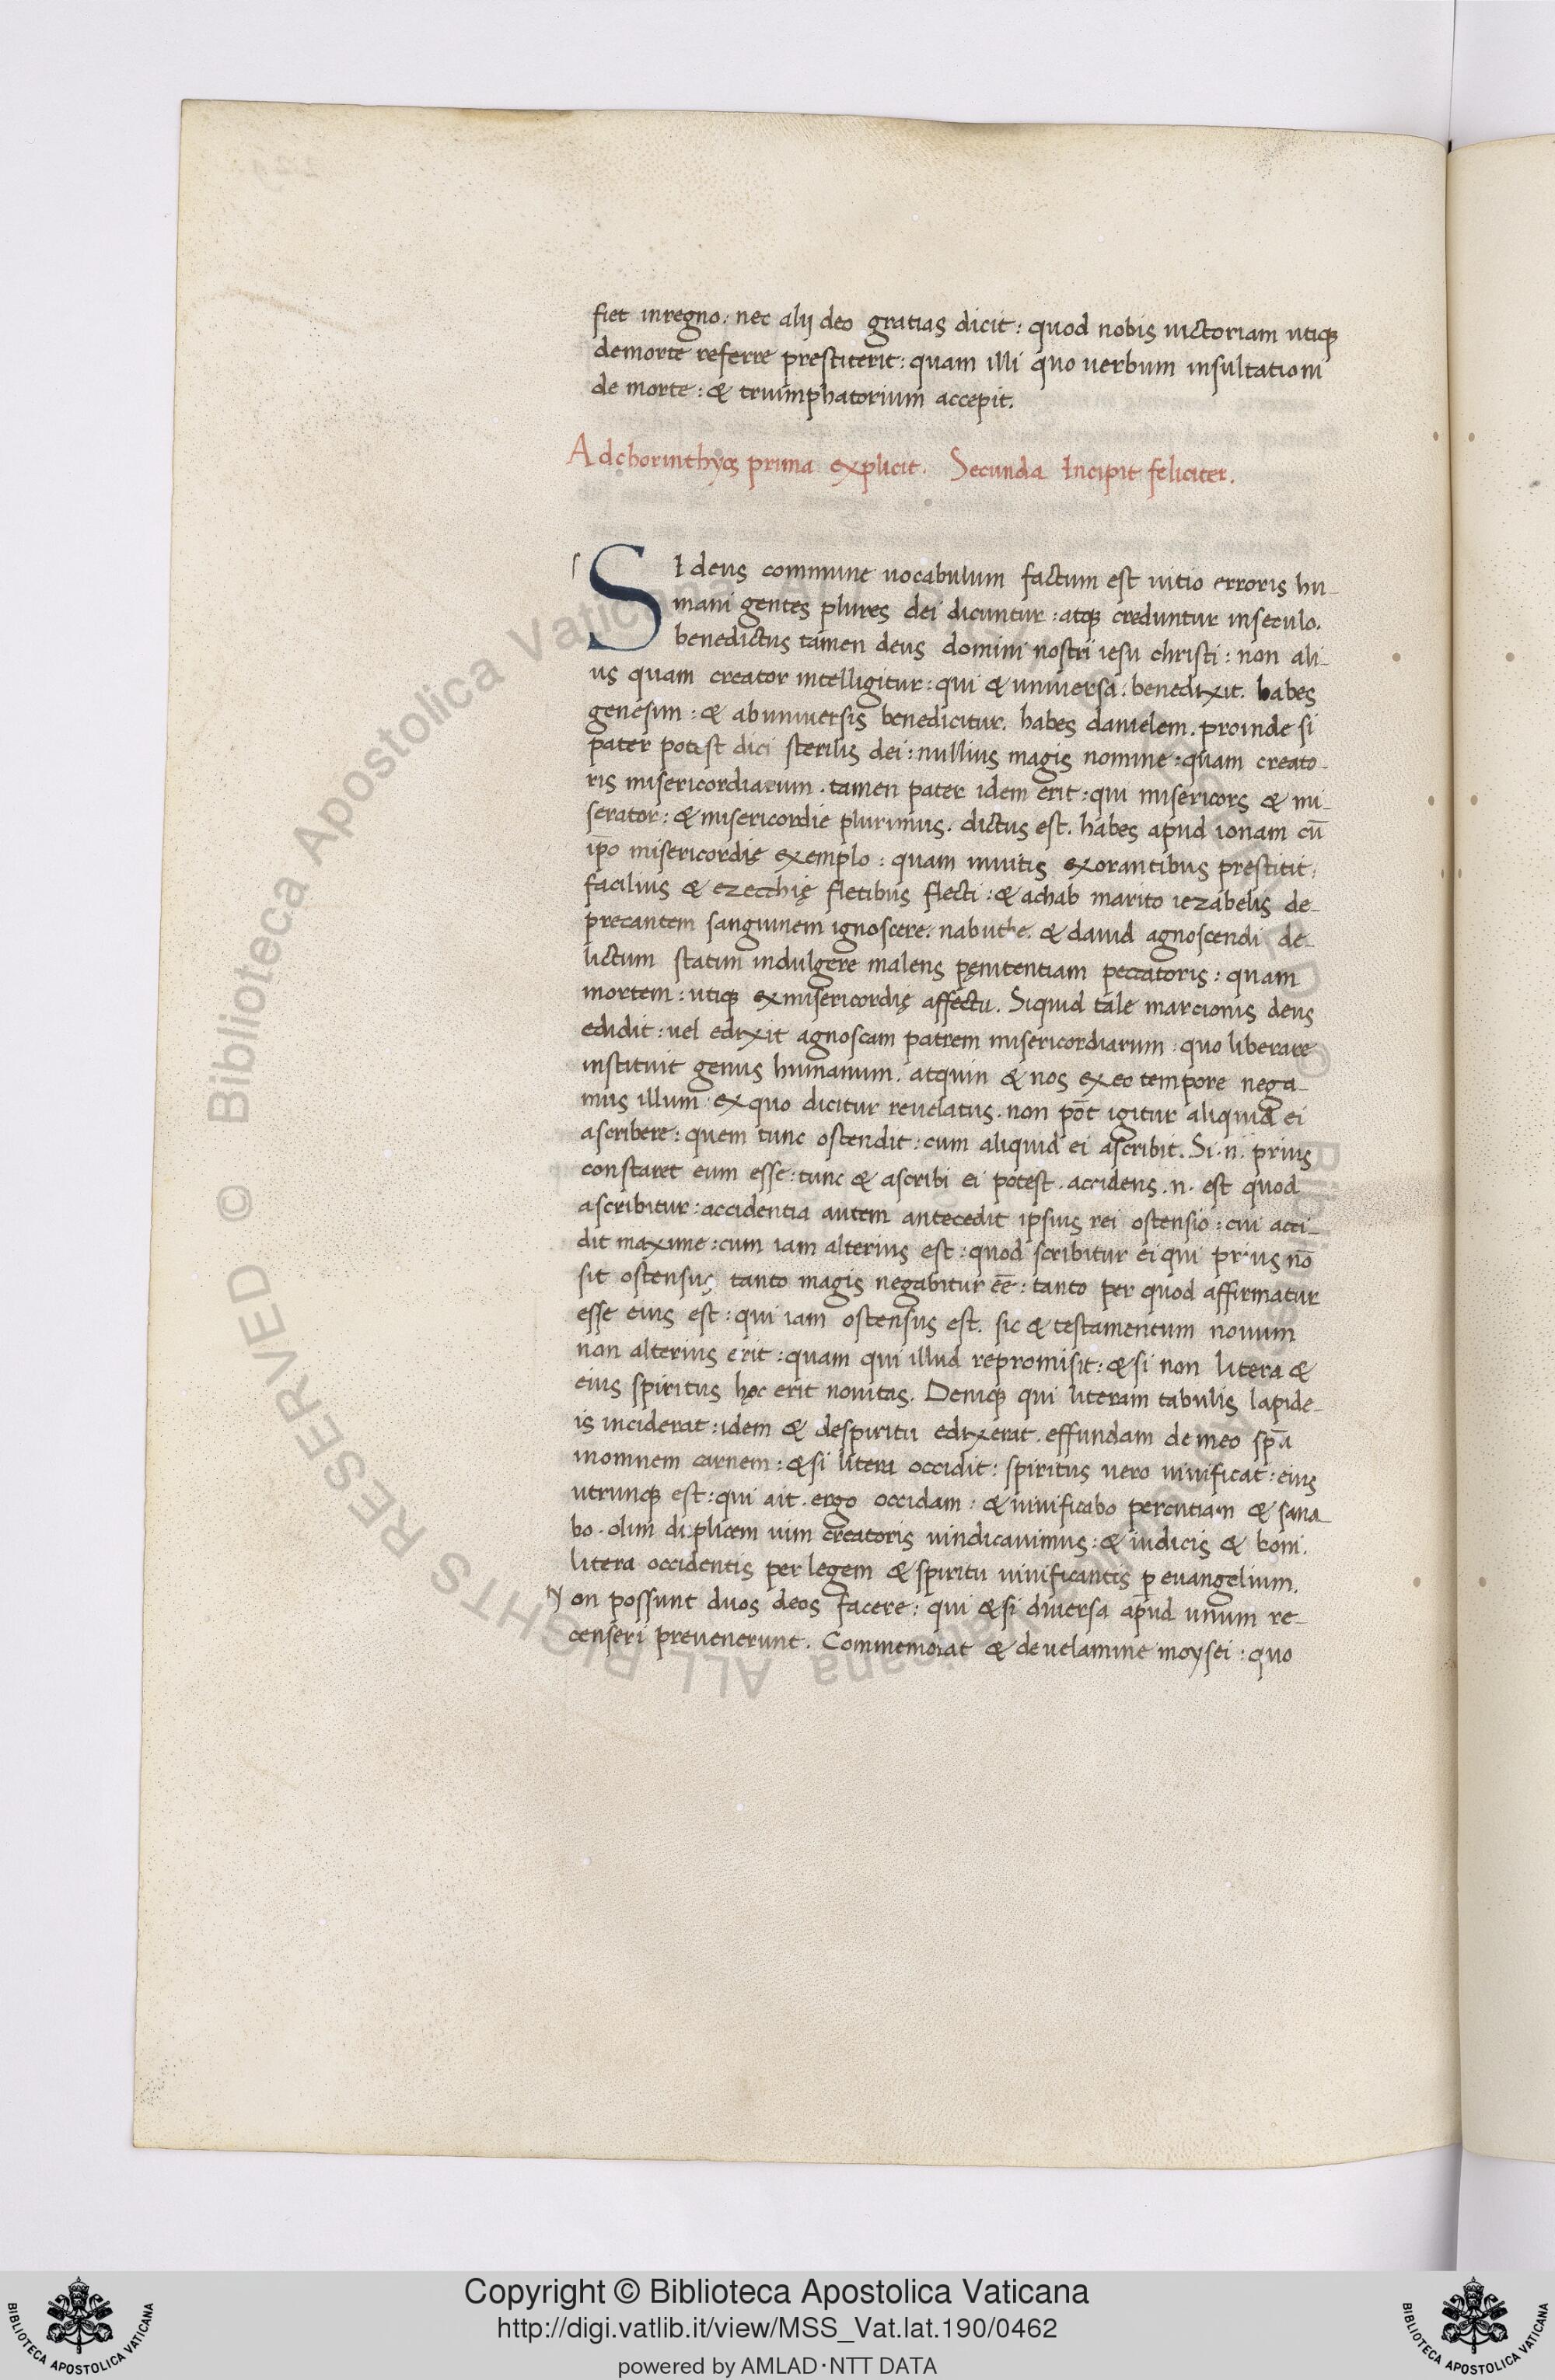 fiet inregno: nec alij deo gratias dicit: quod nobis uictoriam utiqꝫ
demorte referre prestiterit: quam illi quo uerbum insultationi
de morte: & triumphatorium accepit.
Adchorinthyos prima explicit. Secunda Incipit feliciter.
SI deus commune uocabulum factum est uitio erroris hu-
mani gentes plures dei dicuntur: atqꝫ creduntur inseculo.
benedictus tamen deus domini nostri iesu christi: non ali-
us quam creator intelligitur: qui & uniuersa. benedixit. habes
genesim: & abuniuersis benedicitur. habes danielem. proinde si
pater potest dici sterilis dei: nullius magis nomine: quam creato-
ris misericordiarum. tamen pater idem erit: qui misericors & mi-
serator: & misericordie plurimus. dictus est. habes apud ionam cū
ip̄o misericordię exemplo: quam inuitis exorantibus prestitit:
facilius & ezecchię fletibus flecti: & achab marito iezabelis de-
precantem sanguinem ignoscere. nabuthe. & dauid agnoscendi de-
lictum statim indulgere malens pęnitentiam peccatoris: quam
mortem: utiqꝫ exmisericordię affectu. Siquid tale marcionis deus
edidit: uel edixit agnoscam patrem misericordiarum: quo liberare
instituit genus humanum. atquin & nos exeo tempore nega-
mus illum exquo dicitur reuelatus. non pōt igitur aliquid ei
ascribere: quem tunc ostendit: cum aliquid ei ascribit. Si .n. prius
constaret eum esse: tunc & ascribi ei potest. accidens .n. est quod
ascribitur: accidentia autem antecedit ipsius rei ostensio: cui acci-
dit maxime: cum iam alterius est: quod scribitur ei qui prius nō
sit ostensus tanto magis negabitur eē: tanto per quod affirmatur
esse eius est: qui iam ostensus est. sic & testamentum nouum
non alterius erit: quam qui illud repromisit: & si non litera &
eius spiritus hęc erit nouitas. Deniqꝫ qui literam tabulis lapide-
is inciderat: idem & despiritu edixerat. effundam de meo sp̄a
inomnem carnem: & si litera occidit: spiritus uero uiuificat: eius
utrunqꝫ est: qui ait. ergo occidam: & uiuificabo percutiam & sana-
bo. olim diplicem uim creatoris uindicauimus: & iudicis & boni.
litera occidentis per legem & spiritu uiuificantis ꝑ euangelium.
Non possunt duos deos facere: qui & si diuersa apud unum re-
censeri preuenerunt. Commemorat & deuelamine moysei: quo
Copyright © Biblioteca Apostolica Vaticana
http://digi.vatlib.it/view/MSS_Vat.lat.190/0462
powered by AMLAD·NTT DATA
© Biblioteca Apostolica Vaticana ALL RIGHTS RESERVED
BIBLIOTECA APOSTOLICA VATICANA
BIBLIOTECA APOSTOLICA VATICANA